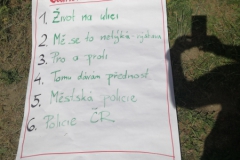 1. Život na ulici
2. Mě se to netýká
3. Pro a proti
4. Tomu dávám přednost
5. Městská policie
6. Policie ČR